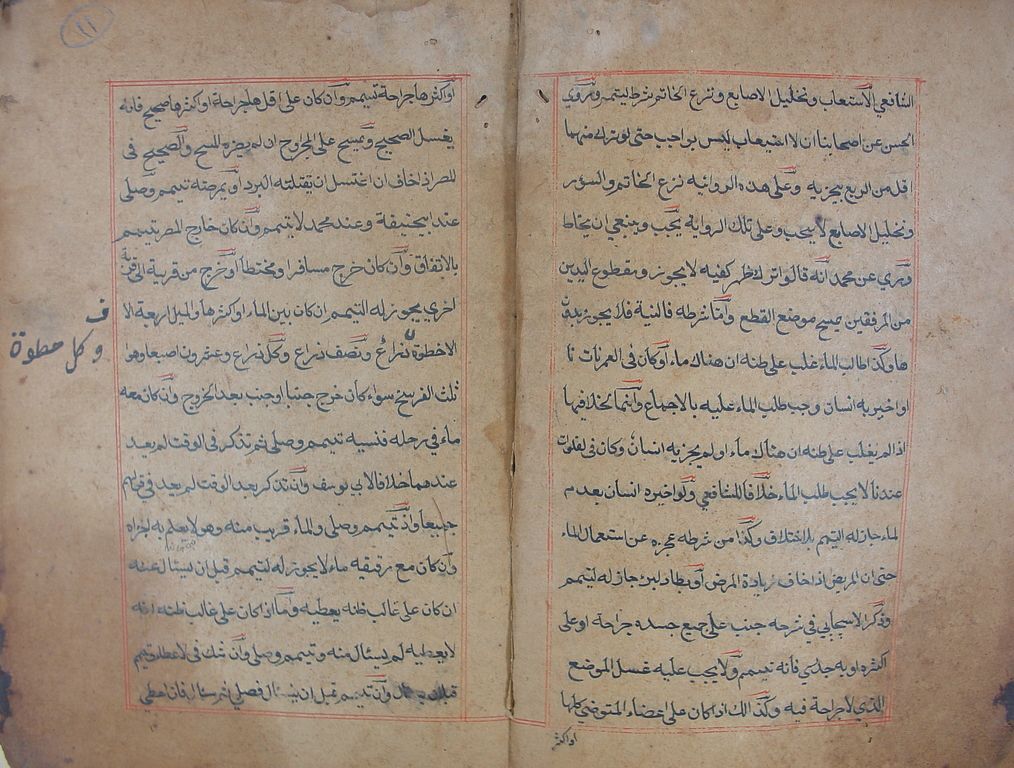 الشافعي الاستعاب وتخليل الاصابع ونزع الخاتم شرط لتيمم وتروي
الحسن عن اصحابنا ان الاستيعاب ليس بواجب حتى لو ترك منهما
اقل من الربع يجزيه وعلى هذه الروائية نزع الخاتم والسؤر
وتخليل الاصابع لا يجب وعلى تلك الرواية يجب وينبغي ان يحتاط
وتري عن محمد انه قال لو اترك ظهر كفيه لا يجوز ومقطوع اليدين
من المرفقين يمسح موضع القطع وأمّا شرطه فالنية فلا يجوز بدو
ها وكذا طالب الماء غلب على ظنه ان هناك ماء أو كان في العمرنات
او اخبر به انسان وجب طلب الماء عليه بالاجماع وانما الخلاف فيها
اذا لم يغلب على ظنه ان هناك ماء او لم يجزيه انسان وكان في لفلوت
عندنا لا يجب طلب الماء خلافا للشافعي ولو اخبره انسان بعدم
لماء جاز له التيمم بلا اختلاف وكذا من شرطه عجزه عن استعمال الماء
حتى ان المريض اذا خاف زيادة المرض أو بطاء لبرء جاز له لتيمم
وذكر الاسبيجابي في شرحه جنب على جميع جسده جراحة او على
اكثره او به جدري فأنه تيمم ولا يجب عليه غسل الموضع
الذي لا جراحة فيه وكذالك اذا كان على اعضاء المتوضي كلها
او اكثر
١١
او اكثرها جراحة تيمم وان كان على اقلها جراحة او اكثرها صحيح فانه
يغسل الصحيح ويمسح على المجروح ان لم يضره المسح والصحيح في
المصر اذ خاف ان اغتسل ان يقتلته البرد او يمرضه تيمم وصلى
عند ابيحنيفة وعند محمد لا يتيمم وان كان خارج المصر تيمم
بالاتفاق وأن كان خرج مسافرا ومحتطبا أو خرج من قرية الى قرية
اخري يجوز له التيمم ان كان بين الماء او اكثرها والميل اربعة الا
الاخطوة ذراع ونصف ذراع وكل ذراع وعشرون اصبعا وهوا
ف
وكل خطوة
ثلث الفرسخ سوأء كان خرج جنبا او جنب بعد الخروج وأن كان معه
ماء في رحله فنسيه تيمم وصلى ثم تذكر في الوقت لم يعيد
عندهما خلافا لابي يوسف وان تذكر بعد الوقت لم يعد في قولهم
جميعا واذ تيمم وصلى والماء قريب منه وهو لا يعلم به اجزاه
وأن كان مع رفيقه ماء لا يجوز له لتيمم قبل ان يسئال عنه
ان كان على غالب ظنه يعطيه وما اذا كان على غالب ظنه انه
لا يعطيه لم يسئال منه وتيمم وصلى وأن شك في لاعطاء تيمم
وأن تيمم قبل ان يسئال فصلى ثم سئال فان اعطي